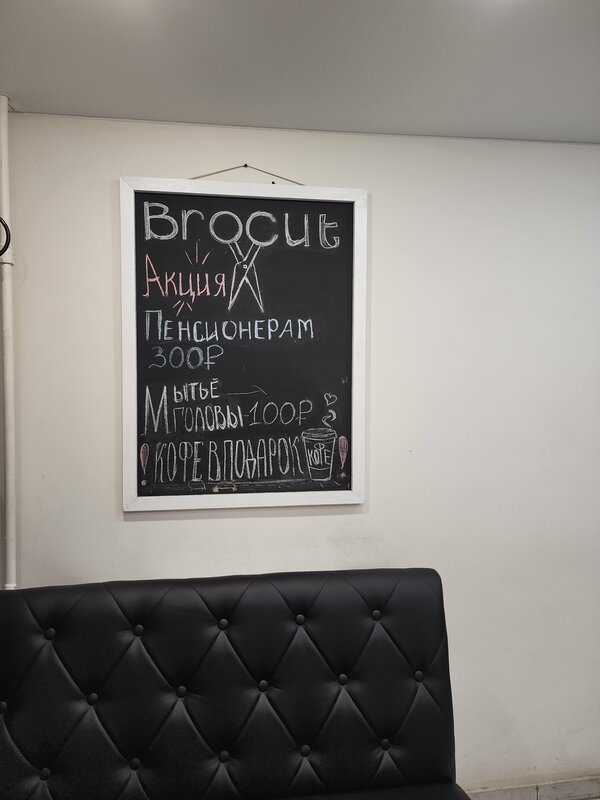 Brocut
Акция
Пенсионерам
300₽
Мытьё
головы 100₽
! Кофе в подарок Кофе !